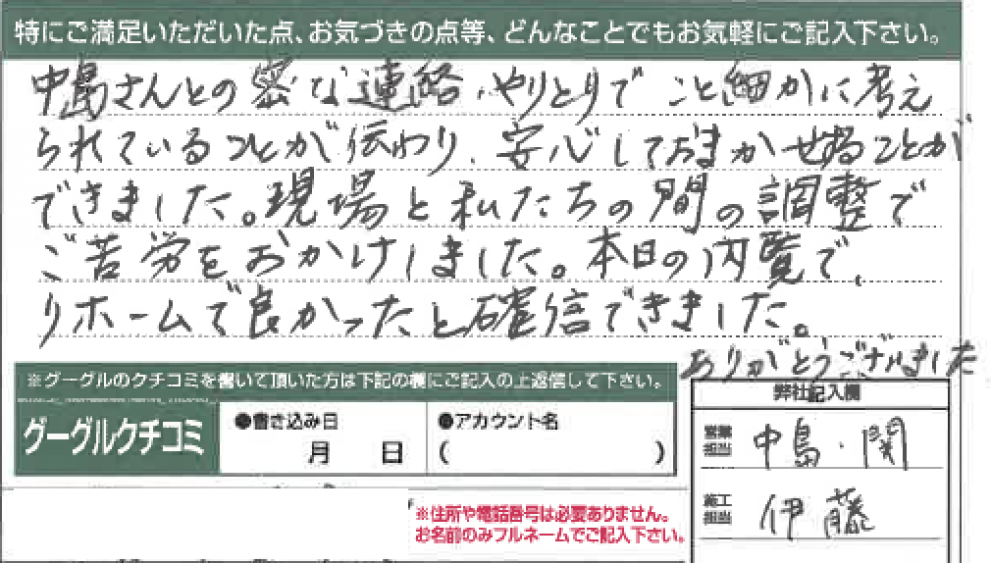 特にご満足いただいた点、お気づきの点等、どんなことでもお気軽にご記入下さい。
中島さんとの密な連絡・やりとりで こと細かに考え
られていることが伝わり、安心しておまかせることが
できました。現場と私たちの間の調整で
ご苦労をおかけしました。本日の内覧で、
リホームで良かったと確信できました。
ありがとうございました
※グーグルのクチコミを書いて頂いた方は下記の欄にご記入の上返信して下さい。
グーグルクチコミ
●書き込み日
月 日
●アカウント名
( )
弊社記入欄
営業担当 中島・関
施工担当 伊藤
※住所や電話番号は必要ありません。
お名前のみフルネームでご記入下さい。